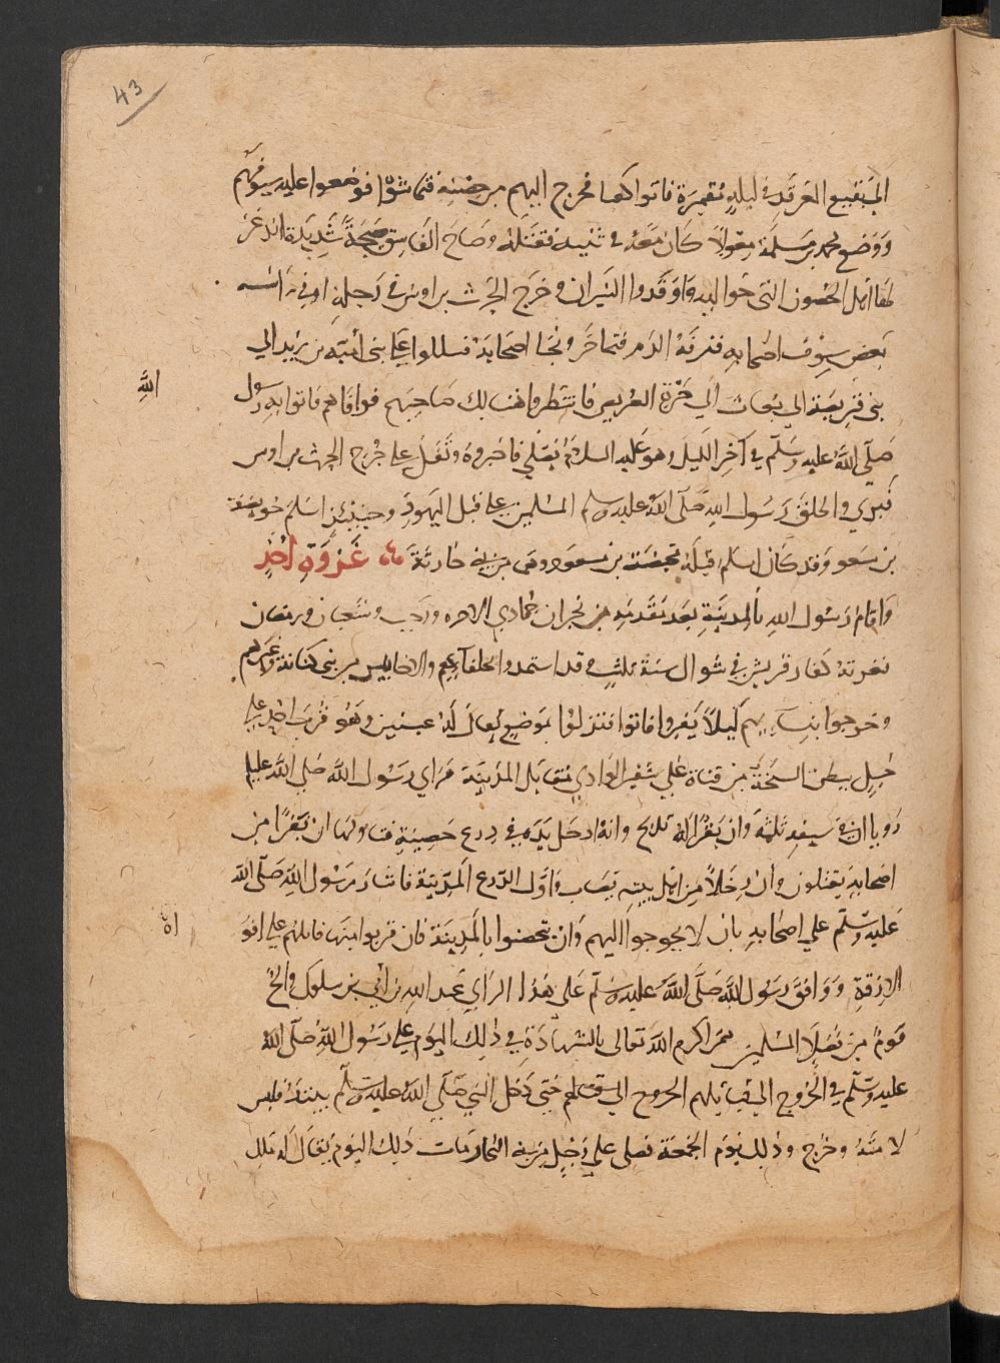 43
البقيع الغرقد في ليلة مقمرة فاتوا كعبا فخرج اليهم من حصنه فتماشوا فوضعوا عليه سيوفهم
ووضع محمد بن مسلمة مغولا كان معه في ثنيه فقتله وصاح الفاسق صيحة شديدة انذعر
لها اهل الحصون التي حواليه واوقدوا النيران وخرج الحرث بن اوس في رجله او في راسه
بعض سيوف اصحابه فنزفه الدم فتاخر ونجا اصحابه فسلكوا على بني امية بن زيد الى
بني قريظة الى بعاث الى حرة العريض فانتظروا هنالك صاحبهم فوافاهم فاتوا به رسول
الله
صلى الله عليه وسلم في آخر الليل وهو عليه السلام يصلي فاخبروه وتفل على جرح الحرث بن اوس
فبري واطلق رسول الله صلى الله عليه وسلم المسلمين على قتل اليهود وحينئذ اسلم حويصة
بن مسعود وقد كان اسلم قبله محيصة بن مسعود وهما من بني حارثة غزوة احد
واقام رسول الله بالمدينة بعد مقدمه من نجران جمادي الاخره ورجب وشعبان ورمضان
فغزته كفار قريش في شوال سنة ثلث وقد استمدوا بحلفائهم والاحابيش من بني كنانة وغيرهم
وخرجوا بنسايهم ليلا يفروا فاتوا فنزلوا بموضع يقال له عينين وهو قرب احد على
جبل ببطن السبخة من قناة على شفير الوادي مقابل المدينة فراي رسول الله صلى الله عليه
رويا ان في سيفه ثلمة وان بقرا له تذبح وانه ادخل يده في درع حصينة فتاولها ان نفرا من
اصحابه يقتلون وان رجلا من اهل بيته يصاب واول الدرع المدينة فاشار رسول الله صلى الله
عليه وسلم على اصحابه بان لا يخرجوا اليهم وان يتحصنوا بالمدينة فان قربوا منها قاتلهم على افواه
الازقة ووافق رسول الله صلى الله عليه وسلم على هذا الراي عبد الله بن ابي بن سلول والح
قوم من فضلا المسلمين ممن اكرم الله تعالى بالشهادة في ذلك اليوم على رسول الله صلى الله
عليه وسلم في الخروج الى قتالهم حتى دخل النبي صلى الله عليه وسلم بيته فلبس
لامته وخرج وذلك يوم الجمعة فصلى على رجل من بني النجار مات ذلك اليوم يقال له ملك